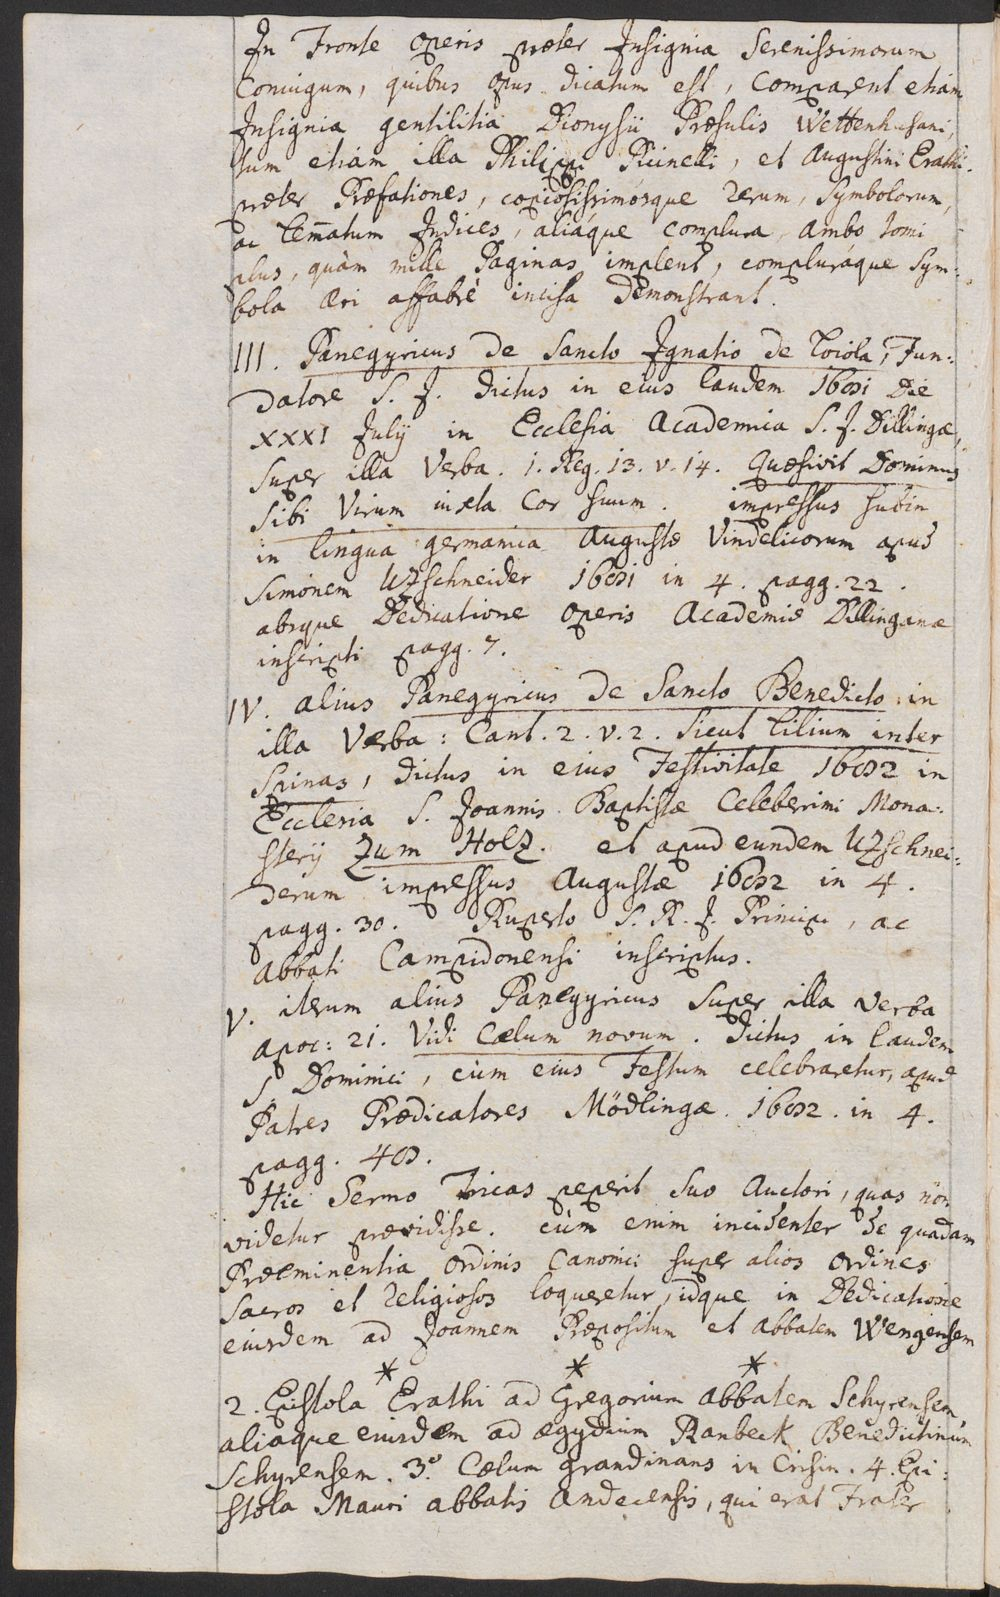 In Fronte operis præter Insignia Serenissimorum
Coniugum, quibus opus dicatum est, comparent etiam
Insignia gentilitia Dionysii Præsulis Wettenhusani,
tum etiam illa Philippi Picinelli, et Augustini Erathi.
præter Præfationes, copiosissimosque rerum, Symbolorum,
ac Lem̄atum Indices, aliáque complura, ambo tomi
plus, quàm mille Paginas implent, compluráque Sym-
bola æri affabrè incisa demonstrant.
III. Panegyricus de Sancto Ignatio de Loiola, Fun-
datore S. J. dictus in eius laudem 1691 Die
XXXI July in Ecclesia Academica S. J. Dillingæ,
super illa Verba. 1. Reg. 13. v. 14. Quæsivit Dominus
sibi Virum iuxta Cor suum. impressus subin
in lingua germanica Augustæ Vindelicorum apud
Simonem Utzschneider 1691 in 4. pagg. 22.
absque Dedicatione operis Academiæ Dillinganæ
inscripti pagg. 7.
IV. alius Panegyricus de Sancto Benedicto in
illa Verba: Cant. 2. v. 2. Sicut Lilium inter
Spinas, dictus in eius Festivitate 1692 in
Ecclesia S. Joannis Baptistæ Celeberimi Mona-
sterij Zum Holz. et apud eundem Utzschnei-
derum impressus Augustæ 1692 in 4.
pagg. 30. Ruperto S. R. J. Principi, ac
Abbati Campidonensi inscriptus.
V. iterum alius Panegyricus super illa verba
apoc: 21. Vidi Cælum novum. dictus in laudem
S. Dominici, cùm eius Festum celebraretur, apud
Patres Prædicatores Mödlingæ. 1692. in 4.
pagg. 49.
Hic Sermo Tricas peperit suo Auctori, quas non
videtur prævidisse. cùm enim incidenter de quadam
Præeminentia ordinis Canonici super alios ordines
sacros et religiosos loqueretur, idque in Dedicatione
eiusdem ad Joannem Præpositum et abbatem Wengensem
* * *
2. Epistola Erathi ad Gregorium abbatem Schyrensem
aliaque eiusdem ad ægydium Ranbeck Benedictinum
Schyrensem. 3.º Cælum grandinans in Crisin. 4. Epi-
stola Mauri abbatis Andecensis, qui erat Frater